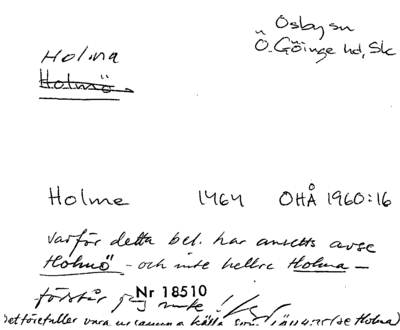 Osby sn
Ö. Göinge hd, Sk
Holma
Holmö
Holme 1464 OHÅ 1960:16
varför detta bel. har ansetts avse
Holmö - och inte hellre Holma -
förstår jag inte!
Nr 18510
det förefaller vara ur samma källa som (se Holma)